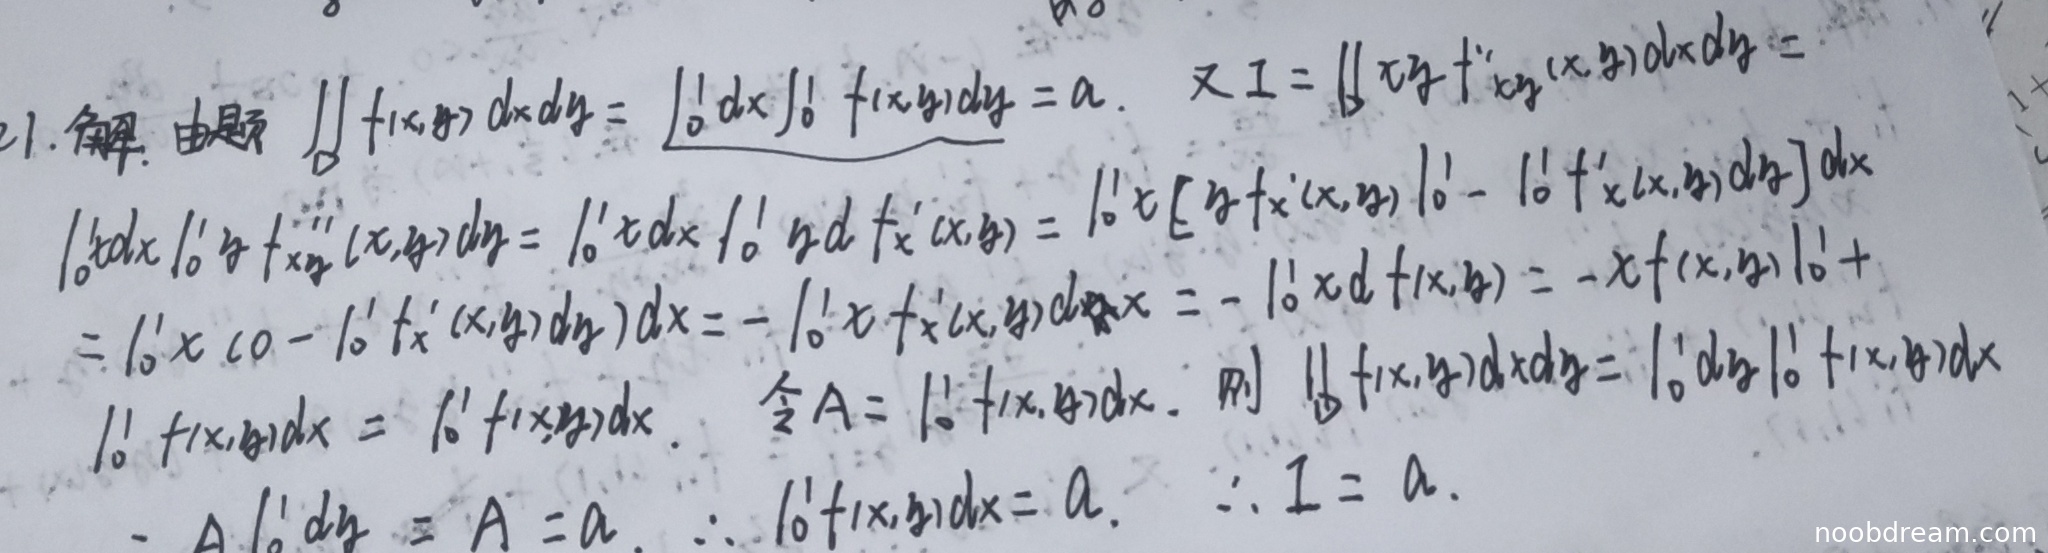 21. 解. 由题 ∬_D f(x,y) dxdy = ∫₀¹dx∫₀¹ f(x,y)dy = a. 又 I = ∬_D xy f''xy(x,y)dxdy =
∫₀¹xdx∫₀¹ y f''xy(x,y)dy = ∫₀¹xdx∫₀¹ yd f'x(x,y) = ∫₀¹x[y f'x(x,y)|₀¹ - ∫₀¹ f'x(x,y)dy]dx
= ∫₀¹x(0 - ∫₀¹ f'x(x,y)dy)dx = -∫₀¹x f'x(x,y)dx = -∫₀¹xd f(x,y) = -x f(x,y)|₀¹ +
∫₀¹ f(x,y)dx = ∫₀¹ f(x,y)dx. 令A = ∫₀¹ f(x,y)dx. 则 ∬_D f(x,y)dxdy = ∫₀¹dy∫₀¹ f(x,y)dx
= A∫₀¹dy = A = a. ∴ ∫₀¹f(x,y)dx = a. ∴ I = a.
noobdream.com